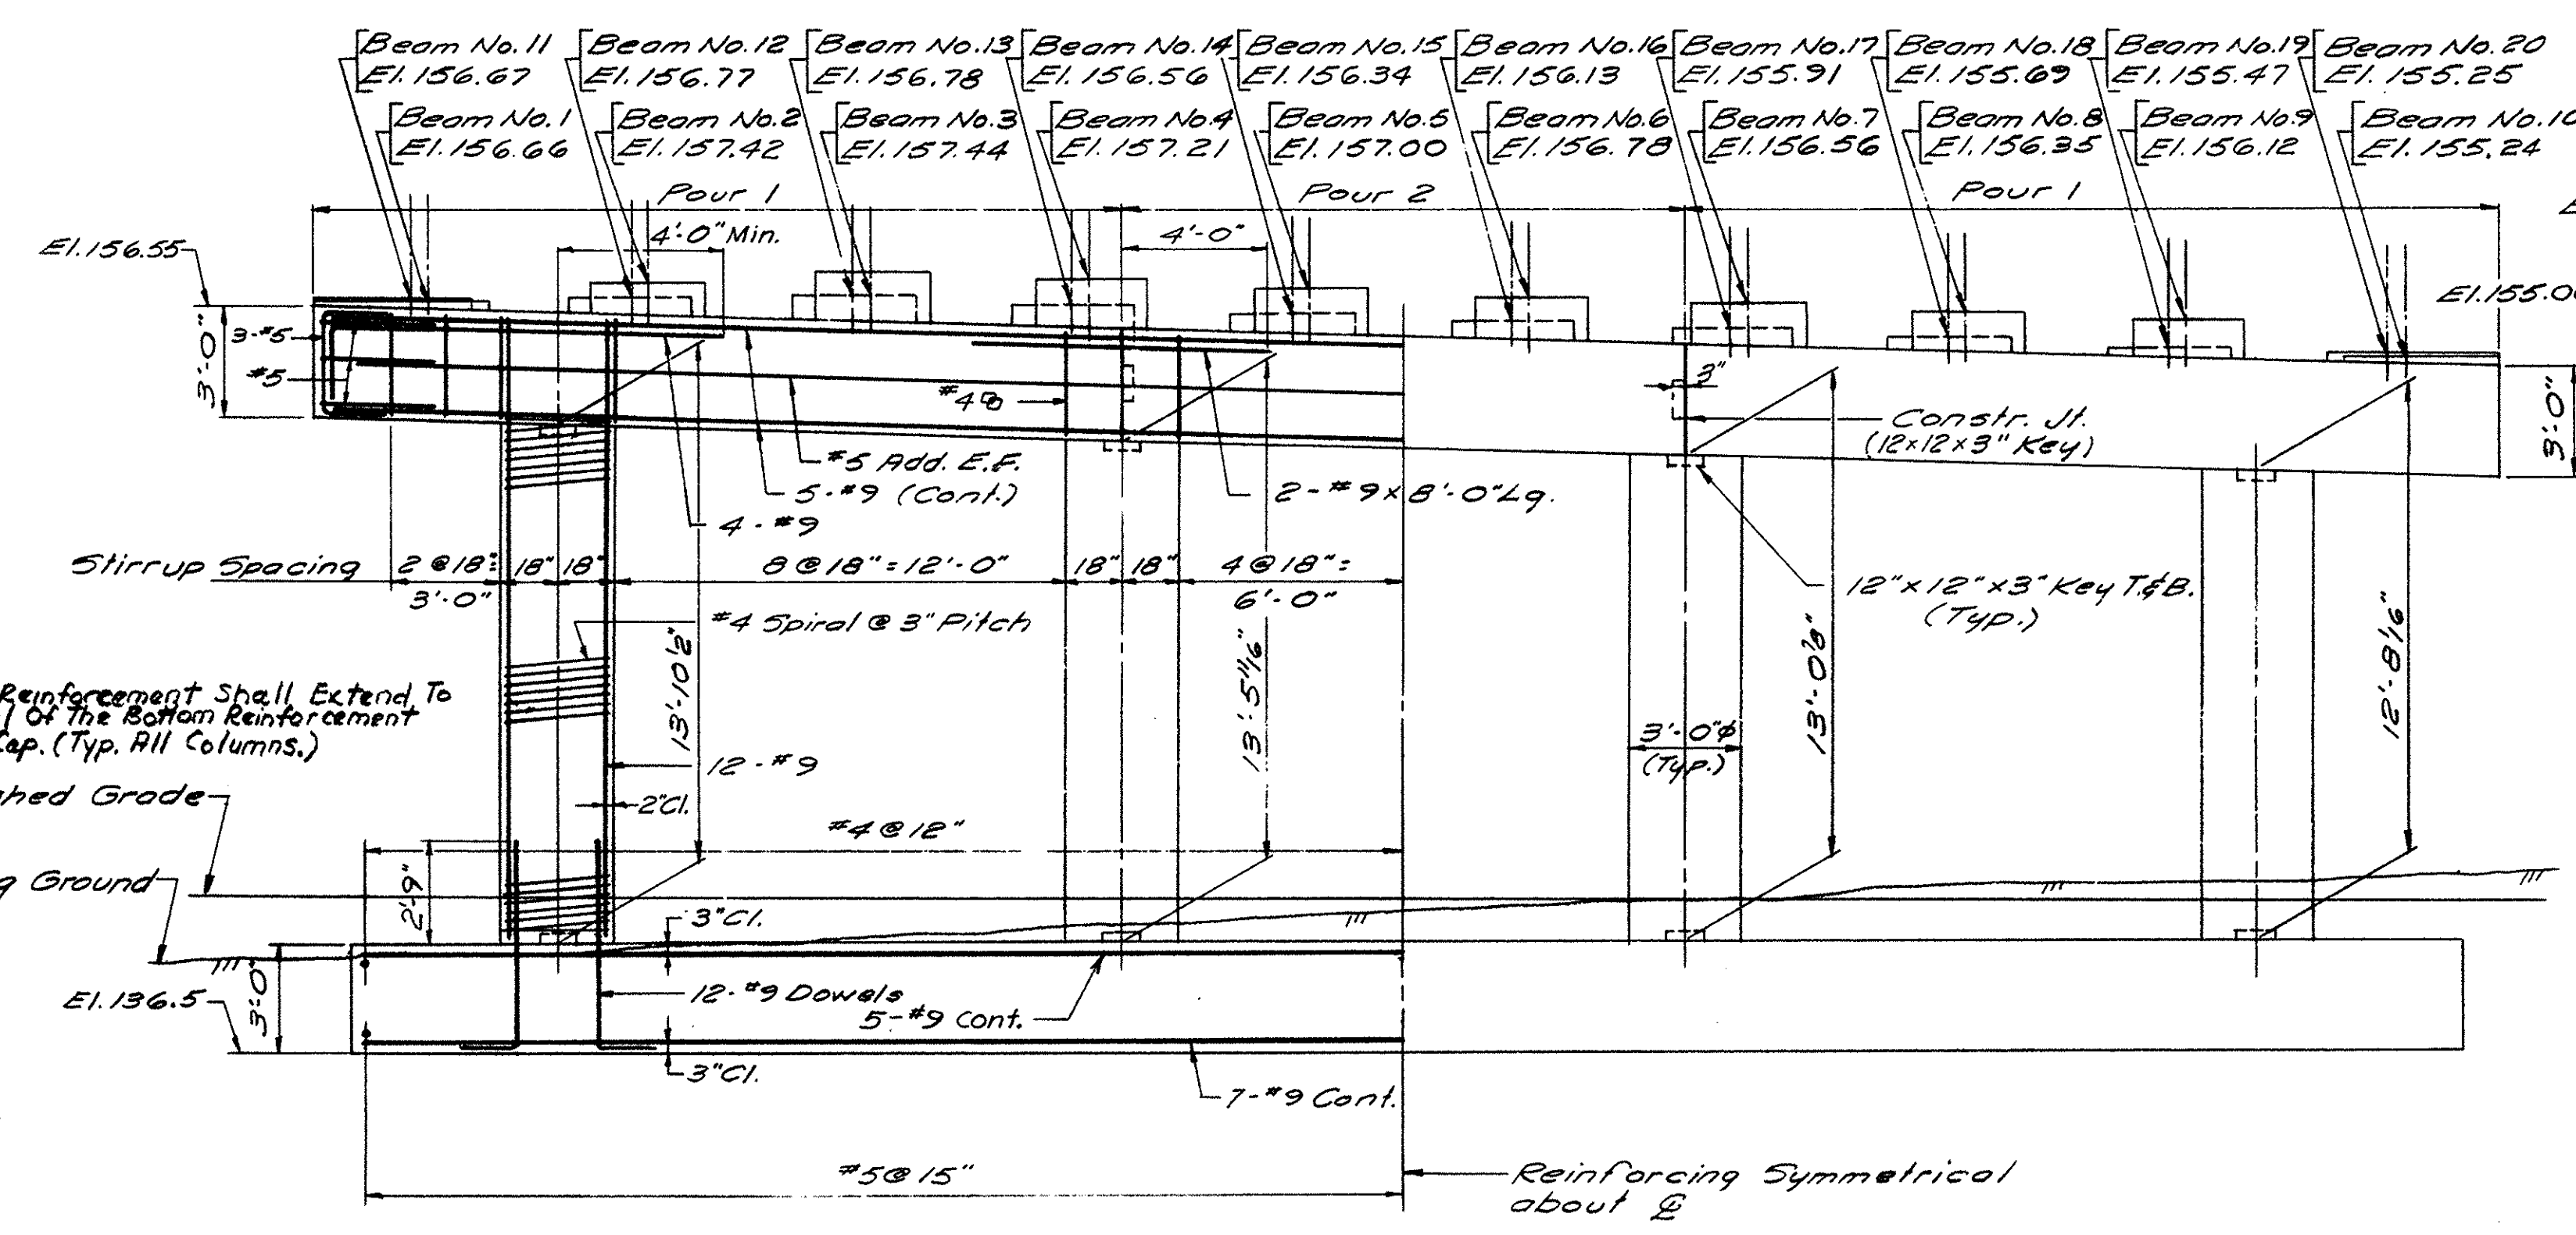 Beam No. 11
El. 156.67
Beam No. 12
El. 156.77
Beam No. 13
El. 156.78
Beam No. 14
El. 156.56
Beam No. 15
El. 156.34
Beam No. 16
El. 156.13
Beam No. 17
El. 155.91
Beam No. 18
El. 155.69
Beam No. 19
El. 155.47
Beam No. 20
El. 155.25
Beam No. 1
El. 156.66
Beam No. 2
El. 157.42
Beam No. 3
El. 157.44
Beam No. 4
El. 157.21
Beam No. 5
El. 157.00
Beam No. 6
El. 156.78
Beam No. 7
El. 156.56
Beam No. 8
El. 156.35
Beam No. 9
El. 156.12
Beam No. 10
El. 155.24
Pour 1
Pour 2
Pour 1
4'-0" Min.
4'-0"
El. 156.55
El. 155.0
3-#5
#5
3'-0"
#4
3"
Constr. Jt.
(12x12x3" Key)
3'-0"
#5 Add. E.F.
5-#9 (Cont.)
4-#9
2-#9x8'-0" Lg.
Stirrup Spacing
2@18"=
3'-0"
18"
18"
8@18"=12'-0"
18"
18"
4@18"=
6'-0"
12"x12"x3" Key T.&B.
(Typ.)
#4 Spiral @ 3" Pitch
13'-10½"
13'-5 11/16"
13'-0⅞"
12'-8 1/16"
Reinforcement Shall Extend To
Of The Bottom Reinforcement
Cap. (Typ. All Columns.)
3'-0"ø
(Typ.)
12-#9
2"Cl.
shed Grade
#4@12"
g Ground
2'-9"
3"Cl.
El. 136.5
3'-0"
12-#9 Dowels
5-#9 Cont.
3"Cl.
7-#9 Cont.
#5@15"
Reinforcing Symmetrical
about ℄